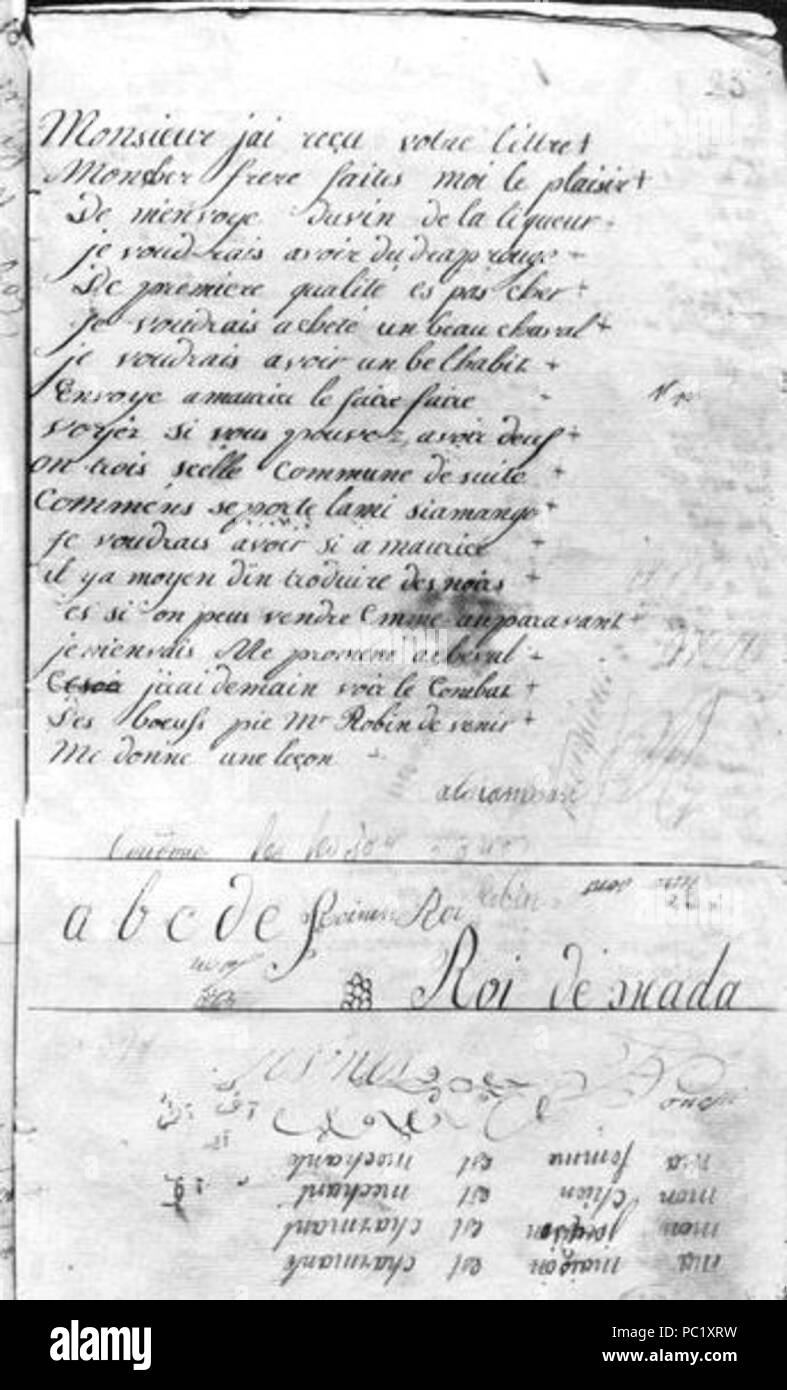 23
Monsieur jai reçu votre littre +
Moncher frere faites moi le plaisir +
De m'envoye duvin de la liqueur
je voudrais avoir du drap rouge +
De premiere qualité es pas cher +
Je voudrais acheté un beau chaval +
je voudrais avoir un bel habit +
Envoye a maurice le faire faire
voyez si vous pouvez avoir deux +
on trois scelle commune de suite +
Commens se porte lami siamango +
Je voudrais avoir si a maurice +
il ya moyen d'introduire des noirs +
es si on peus vendre Comme anparavant +
je m'envais Me promené acheval +
jirai demain voir le Combat +
Des boeufs pié Mr Robin de venir +
Me donne une leçon
a b c d e f Roi
Roi de mada
ma maison est charmante
mon est charmant
mon chien est mechant
ma femme est mechante
alamy
Image ID: PC1XRW
www.alamy.com